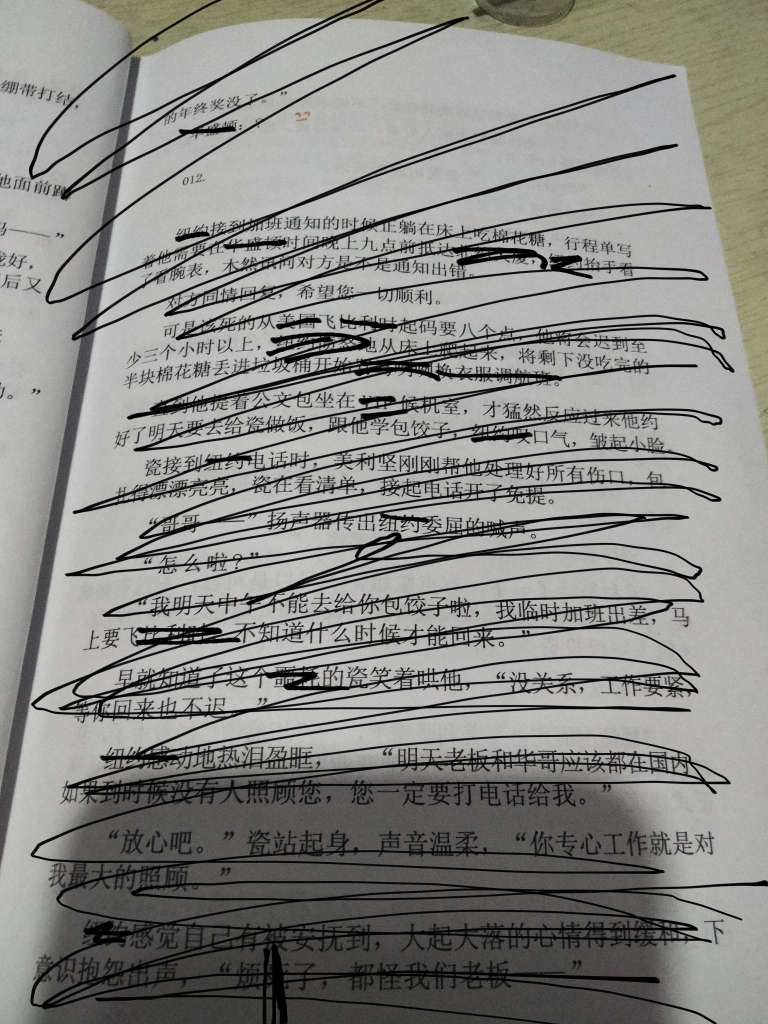 绷带打结，
他面前
的年终奖没了。”
华盛顿：？
012.
纽约接到加班通知的时候正躺在床上吃棉花糖，行程单写
着他需要在华盛顿时间晚上九点前抵达
了看腕表，木然询问对方是不是通知出错。
对方同情回复，希望您一切顺利。
可是该死的从美国飞比利时起码要八个点，他将会迟到至
少三个小时以上，地从床上爬起来，将剩下没吃完的
半块棉花糖丢进垃圾桶开始换衣服调航班。
直到他提着公文包坐在候机室，才猛然反应过来他约
好了明天要去给瓷做饭，跟他学包饺子，纽约叹口气，皱起小脸。
瓷接到纽约电话时，美利坚刚刚帮他处理好所有伤口，包
扎得漂漂亮亮，瓷在看清单，接起电话开了免提。
“哥哥——”扬声器传出纽约委屈的喊声。
“怎么啦？”
“我明天中午不能去给你包饺子啦，我临时加班出差，马
上要飞比利时，不知道什么时候才能回来。”
早就知道了这个噩耗的瓷笑着哄他，“没关系，工作要紧，
等你回来也不迟。”
纽约感动地热泪盈眶，“明天老板和华哥应该都在国内，
如果到时候没有人照顾您，您一定要打电话给我。”
“放心吧。”瓷站起身，声音温柔，“你专心工作就是对
我最大的照顾。”
纽约感觉自己有被安抚到，大起大落的心情得到缓和，下
意识抱怨出声，“烦死了，都怪我们老板——”